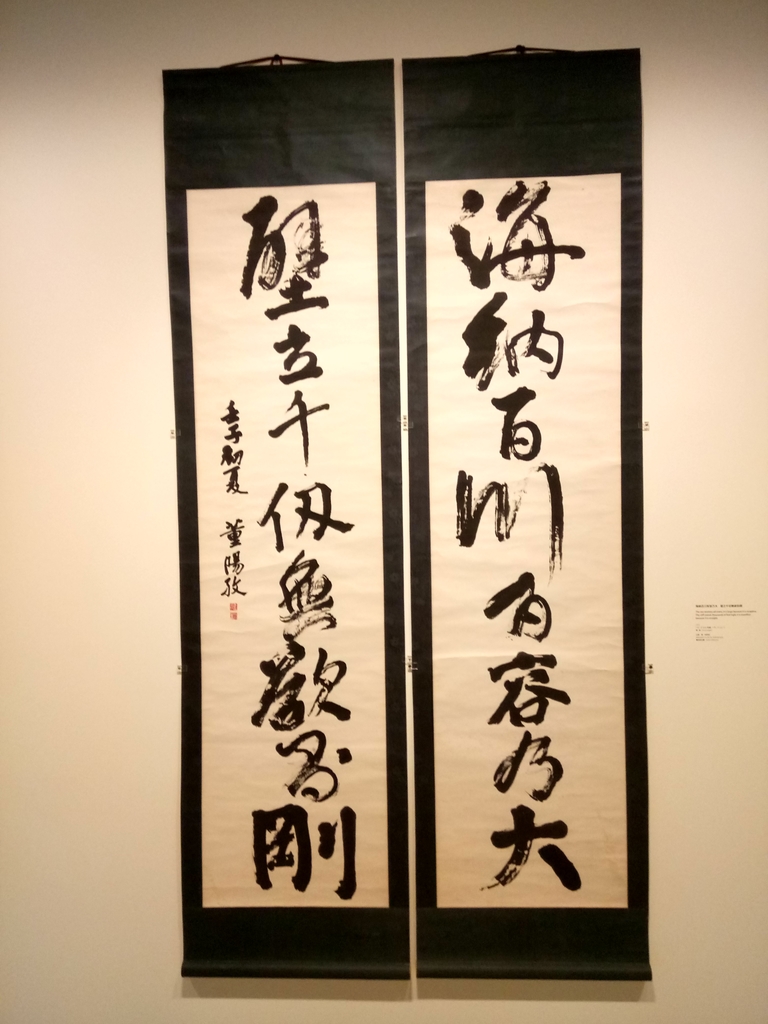 海納百川有容乃大
壁立千仞無欲則剛
壬子初夏 董陽孜